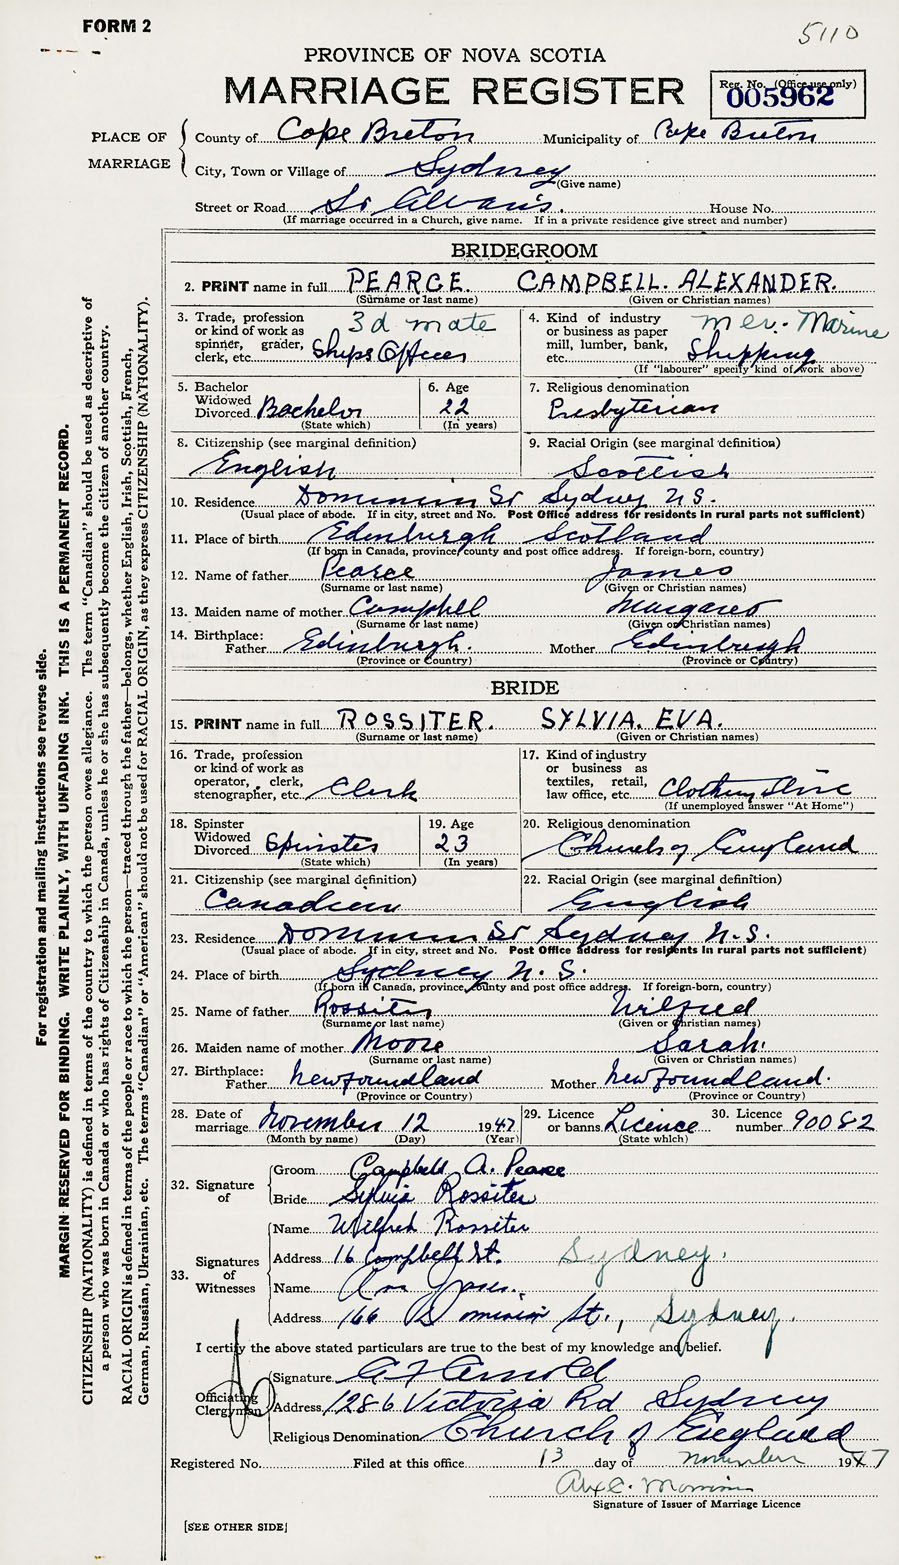 FORM 2
5110
PROVINCE OF NOVA SCOTIA
MARRIAGE REGISTER
Reg. No. (Office use only)
005962
PLACE OF MARRIAGE
County of Cape Breton Municipality of Cape Breton
City, Town or Village of Sydney
(Give name)
Street or Road St Alvans. House No.
(If marriage occurred in a Church, give name. If in a private residence give street and number)
BRIDEGROOM
2. PRINT name in full PEARCE. CAMPBELL. ALEXANDER.
(Surname or last name) (Given or Christian names)
3. Trade, profession or kind of work as spinner, grader, clerk, etc. 3d mate Ships Officer
4. Kind of industry or business as paper mill, lumber, bank, etc. Mer. Marine Shipping
(If "labourer" specify kind of work above)
5. Bachelor Widowed Divorced Bachelor
(State which)
6. Age 22
(In years)
7. Religious denomination Presbyterian
8. Citizenship (see marginal definition) English
9. Racial Origin (see marginal definition) Scottish
10. Residence Dominion St Sydney N.S.
(Usual place of abode. If in city, street and No. Post Office address for residents in rural parts not sufficient)
11. Place of birth Edinburgh Scotland
(If born in Canada, province, county and post office address. If foreign-born, country)
12. Name of father Pearce James
(Surname or last name) (Given or Christian names)
13. Maiden name of mother Campbell Margaret
(Surname or last name) (Given or Christian names)
14. Birthplace:
Father Edinburgh. Mother Edinburgh
(Province or Country) (Province or Country)
BRIDE
15. PRINT name in full ROSSITER. SYLVIA. EVA.
(Surname or last name) (Given or Christian names)
16. Trade, profession or kind of work as operator, clerk, stenographer, etc. Clerk
17. Kind of industry or business as textiles, retail, law office, etc. Clothing Store
(If unemployed answer "At Home")
18. Spinster Widowed Divorced Spinster
(State which)
19. Age 23
(In years)
20. Religious denomination Church of England
21. Citizenship (see marginal definition) Canadian
22. Racial Origin (see marginal definition) English
23. Residence Dominion St Sydney N.S.
(Usual place of abode. If in city, street and No. Post Office address for residents in rural parts not sufficient)
24. Place of birth Sydney N.S.
(If born in Canada, province, county and post office address. If foreign-born, country)
25. Name of father Rossiter Wilfred
(Surname or last name) (Given or Christian names)
26. Maiden name of mother Moore Sarah.
(Surname or last name) (Given or Christian names)
27. Birthplace:
Father Newfoundland Mother Newfoundland.
(Province or Country) (Province or Country)
28. Date of marriage November 12 1947
(Month by name) (Day) (Year)
29. Licence or banns Licence
(State which)
30. Licence number 90082
32. Signature of
Groom Campbell A. Pearce
Bride Sylvia Rossiter
33. Signatures of Witnesses
Name Wilfred Rossiter
Address 16 Campbell St. Sydney.
Name
Address 166 Dominion St., Sydney.
I certify the above stated particulars are true to the best of my knowledge and belief.
Officiating Clergyman
Signature A F Arnold
Address 1286 Victoria Rd Sydney
Religious Denomination Church of England
Registered No. Filed at this office 13 day of November 1947
Signature of Issuer of Marriage Licence
[SEE OTHER SIDE]
For registration and mailing instructions see reverse side.
MARGIN RESERVED FOR BINDING. WRITE PLAINLY, WITH UNFADING INK. THIS IS A PERMANENT RECORD.
CITIZENSHIP (NATIONALITY) is defined in terms of the country to which the person owes allegiance. The term "Canadian" should be used as descriptive of
a person who was born in Canada or who has rights of Citizenship in Canada, unless he or she has subsequently become the citizen of another country.
RACIAL ORIGIN is defined in terms of the people or race to which the person—traced through the father—belongs, whether English, Irish, Scottish, French,
German, Russian, Ukrainian, etc. The terms "Canadian" or "American" should not be used for RACIAL ORIGIN, as they express CITIZENSHIP (NATIONALITY).